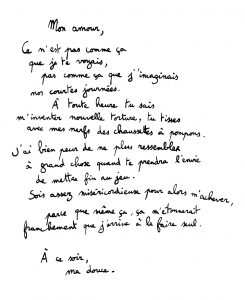 Mon amour,
Ce n'est pas comme ça
que je te voyais,
pas comme ça que j'imaginais
nos courtes journées.
À toute heure tu sais
m'inventer nouvelle torture, tu tisses
avec mes nerfs des chaussettes à pompons.
J'ai bien peur de ne plus ressembler
à grand chose quand te prendra l'envie
de mettre fin au jeu.
Sois assez miséricordieuse pour alors m'achever,
parce que même ça, ça m'étonnerait
franchement que j'arrive à le faire seul.
À ce soir,
ma douce.